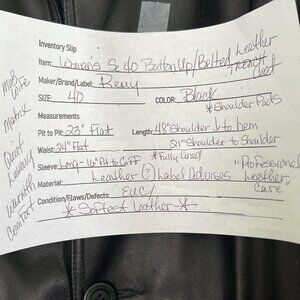 Inventory Slip
Item: Women's S 40 Button Up/Belted Leather Trench Coat
Maker/Brand/Label: Remy
SIZE: 40 COLOR: Black
*Shoulder Pads
Measurements
Pit to Pit: 23" Flat Length: 48" Shoulder to hem
Waist: 24" Flat 31" Shoulder to Shoulder
Sleeve: Long - 16" Pit to Cuff *Fully Lined
Material: Leather (?) Label Advises "Professional Leather Care"
Condition/Flaws/Defects: EUC/
*Softest Leather*
Mob Wife
Matrix
Quiet
Luxury
Warmth
Comfort